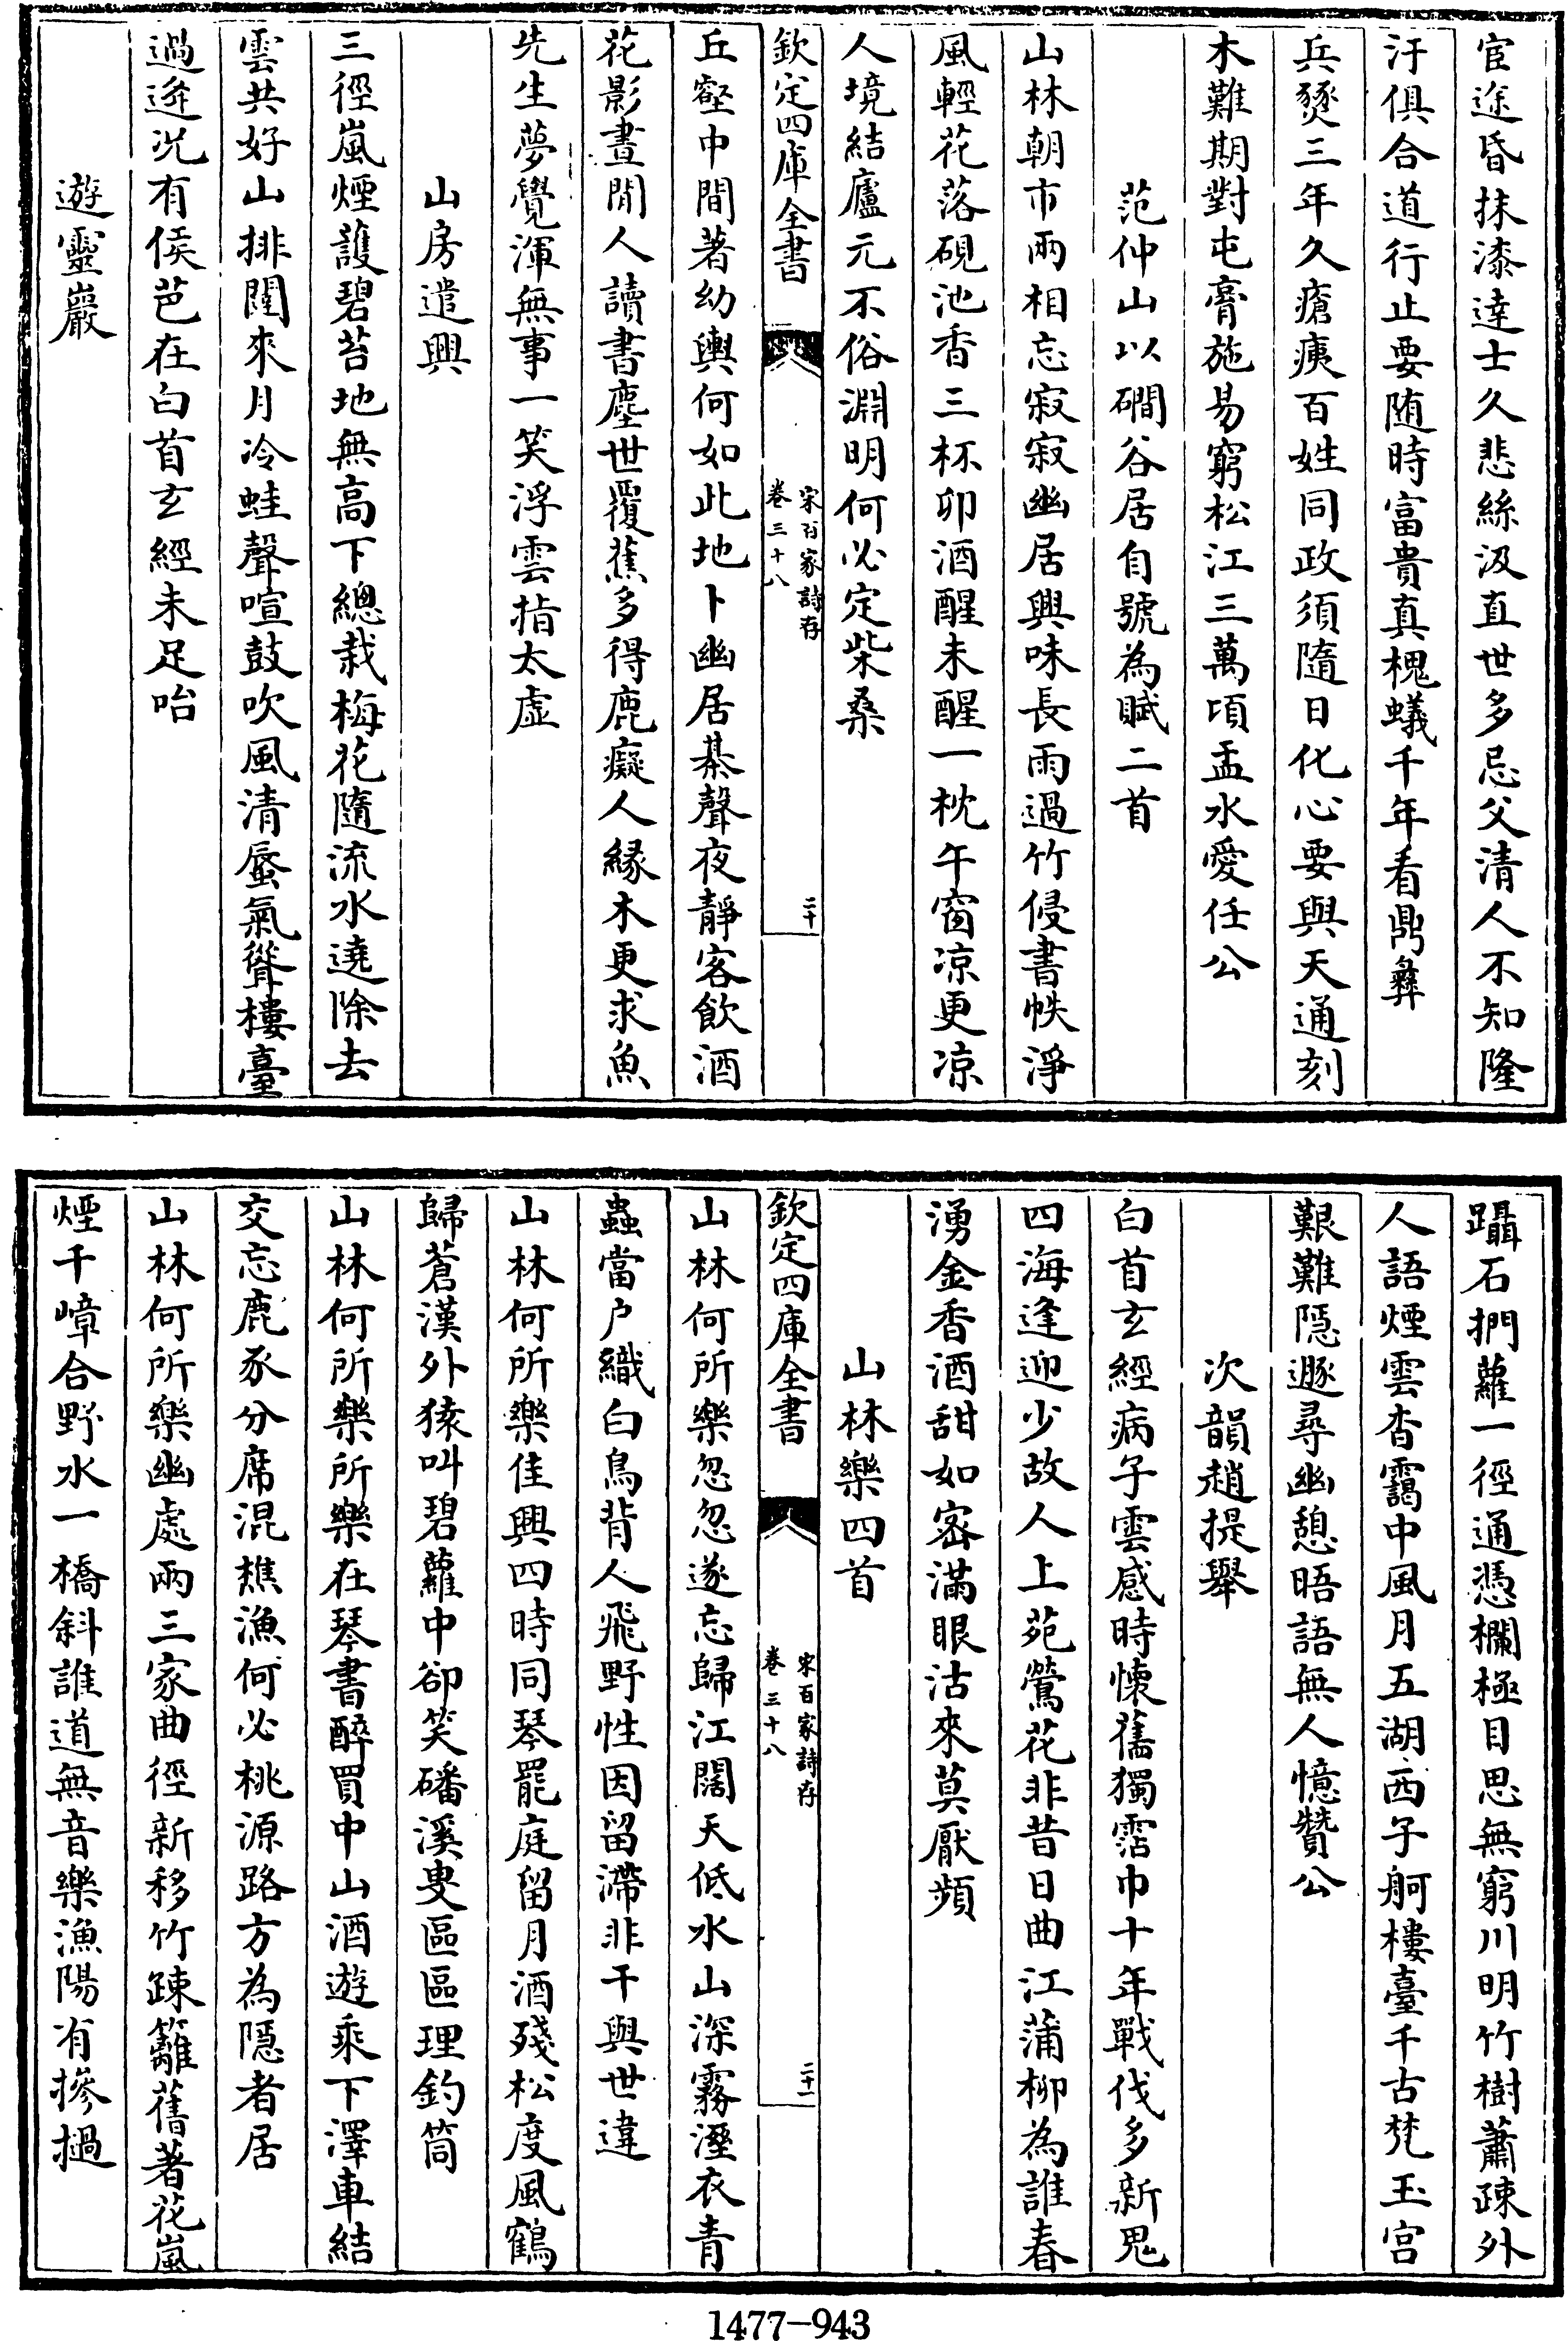 宦途昏抹漆達士久悲絲汲直世多忌父清人不知隆
汙俱合道行止要随時富貴真槐蟻千年看鼎彝
兵燹三年久瘡痍百姓同政須隨日化心要與天通刻
木難期對屯膏施易窮松江三萬頃盂水愛任公
范仲山以磵谷居自號為賦二首
山林朝市兩相忘寂寂幽居興味長雨過竹侵書帙淨
風輕花落硯池香三杯卯酒醒未醒一枕午窗凉更凉
人境結廬元不俗淵明何必定柴桑
欽定四庫全書 宋百家詩存 卷三十八 二十
丘壑中間著幼輿何如此地卜幽居棊聲夜靜客飲酒
花影晝閒人讀書塵世覆蕉多得鹿癡人緣木更求魚
先生夢覺渾無事一笑浮雲指太虛
山房遣興
三徑嵐煙護碧苔地無高下總栽梅花隨流水遶除去
雲共好山排闥來月冷蛙聲喧鼓吹風清蜃氣聳樓臺
過逰况有侯芭在白首玄經未足咍
遊靈巖
躡石捫蘿一徑通憑欄極目思無窮川明竹樹蕭疎外
人語煙雲杳靄中風月五湖西子舸樓臺千古梵王宫
艱難隱遯尋幽憩晤語無人憶贊公
次韻趙提舉
白首玄經病子雲感時懷舊獨霑巾十年戰伐多新鬼
四海逢迎少故人上苑鶯花非昔日曲江蒲柳為誰春
湧金香酒甜如密滿眼沽來莫厭頻
山林樂四首
欽定四庫全書 宋百家詩存 卷三十八 二十一
山林何所樂忽忽遂忘歸江闊天低水山深霧溼衣青
蟲當户織白鳥背人飛野性因留滯非干與世違
山林何所樂佳興四時同琴罷庭留月酒殘松度風鶴
歸蒼漢外猿叫碧蘿中卻笑磻溪叟區區理釣筒
山林何所樂所樂在琴書醉買中山酒遊乘下澤車結
交忘鹿豕分席混樵漁何必桃源路方為隱者居
山林何所樂幽處兩三家曲徑新移竹疎籬舊著花嵐
煙千嶂合野水一橋斜誰道無音樂漁陽有摻撾
1477-943